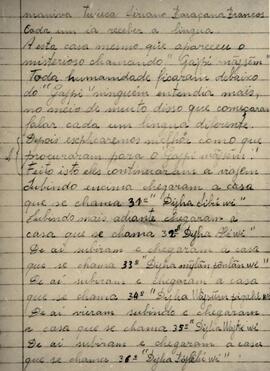 Tuiuca Siriano
Cada um ia receber a lingua
A esta casa mesmo que apareceu o
misterioso chamando "Gaʔpi mahsᵾ̃"
Toda humanidade ficaram debaixo
do "Gaʔpi" ninguém entendia mais,
no meio de muito disso que começaram
falar cada um lingua diferente.
Depois esplicaremos melhor como que
procuraram para o Gaʔpi
Feito isto eles continuaram a viajem
Subindo encima chegaram a casa
que se chama 31ª "Diʔha
Subindo mais adiante chegaram a
casa que se chama 32ª Diʔha
De ai subiram e chegaram a casa
que se chama 33ª "Diʔha
De ai subiram e chegaram a casa
que se chama 34ª "Diʔha
De ai vieram subindo e chegaram
a casa que se chama 35ª "Diʔha
De ai subiram e chegaram á casa
que se chama 36ª "Diʔha